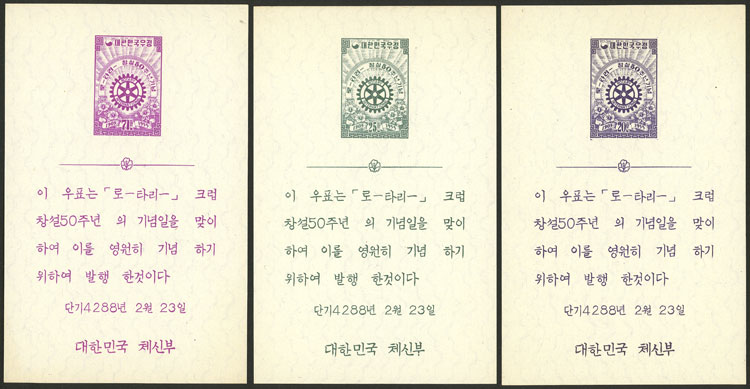 대한민국우정
로ー타리ー 창설50주년기념
71
이 우표는「로ー타리ー」크럽
창설50주년 의 기념일을 맞이
하여 이를 영원히 기념 하기
위하여 발행 한것이다
단기4288년 2월 23일
대한민국 체신부
대한민국우정
로ー타리ー 창설50주년기념
25
이 우표는「로ー타리ー」크럽
창설50주년 의 기념일을 맞이
하여 이를 영원히 기념 하기
위하여 발행 한것이다
단기4288년 2월 23일
대한민국 체신부
대한민국우정
로ー타리ー 창설50주년기념
20
이 우표는「로ー타리ー」크럽
창설50주년 의 기념일을 맞이
하여 이를 영원히 기념 하기
위하여 발행 한것이다
단기4288년 2월 23일
대한민국 체신부